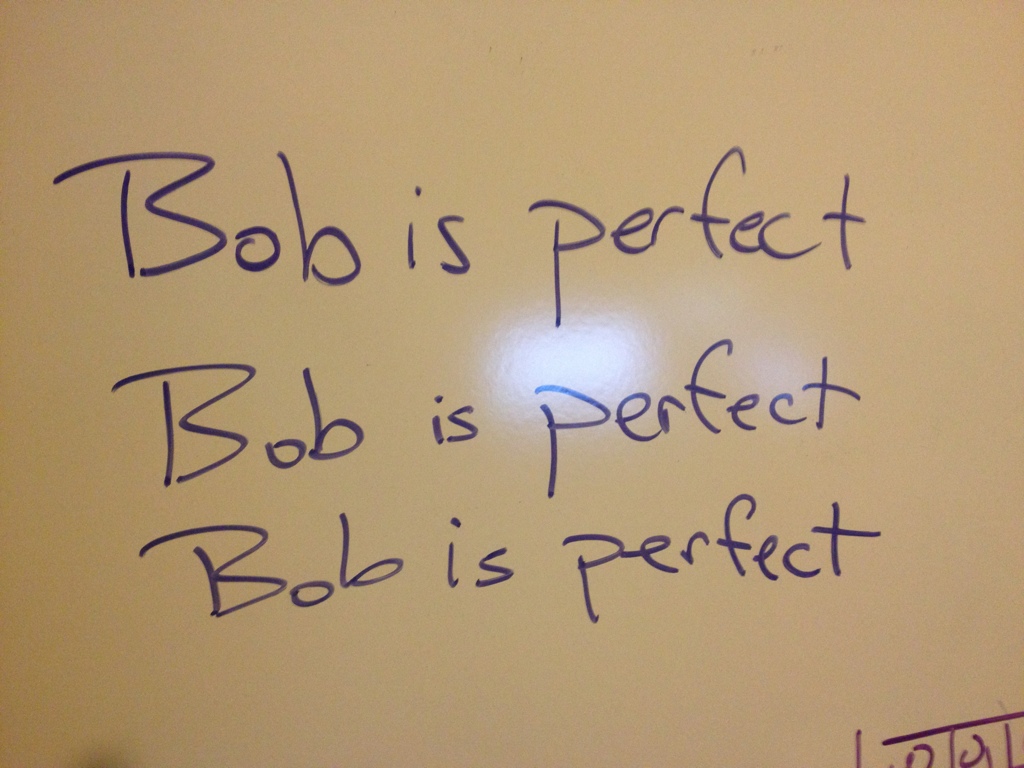 Bob is perfect
Bob is perfect
Bob is perfect